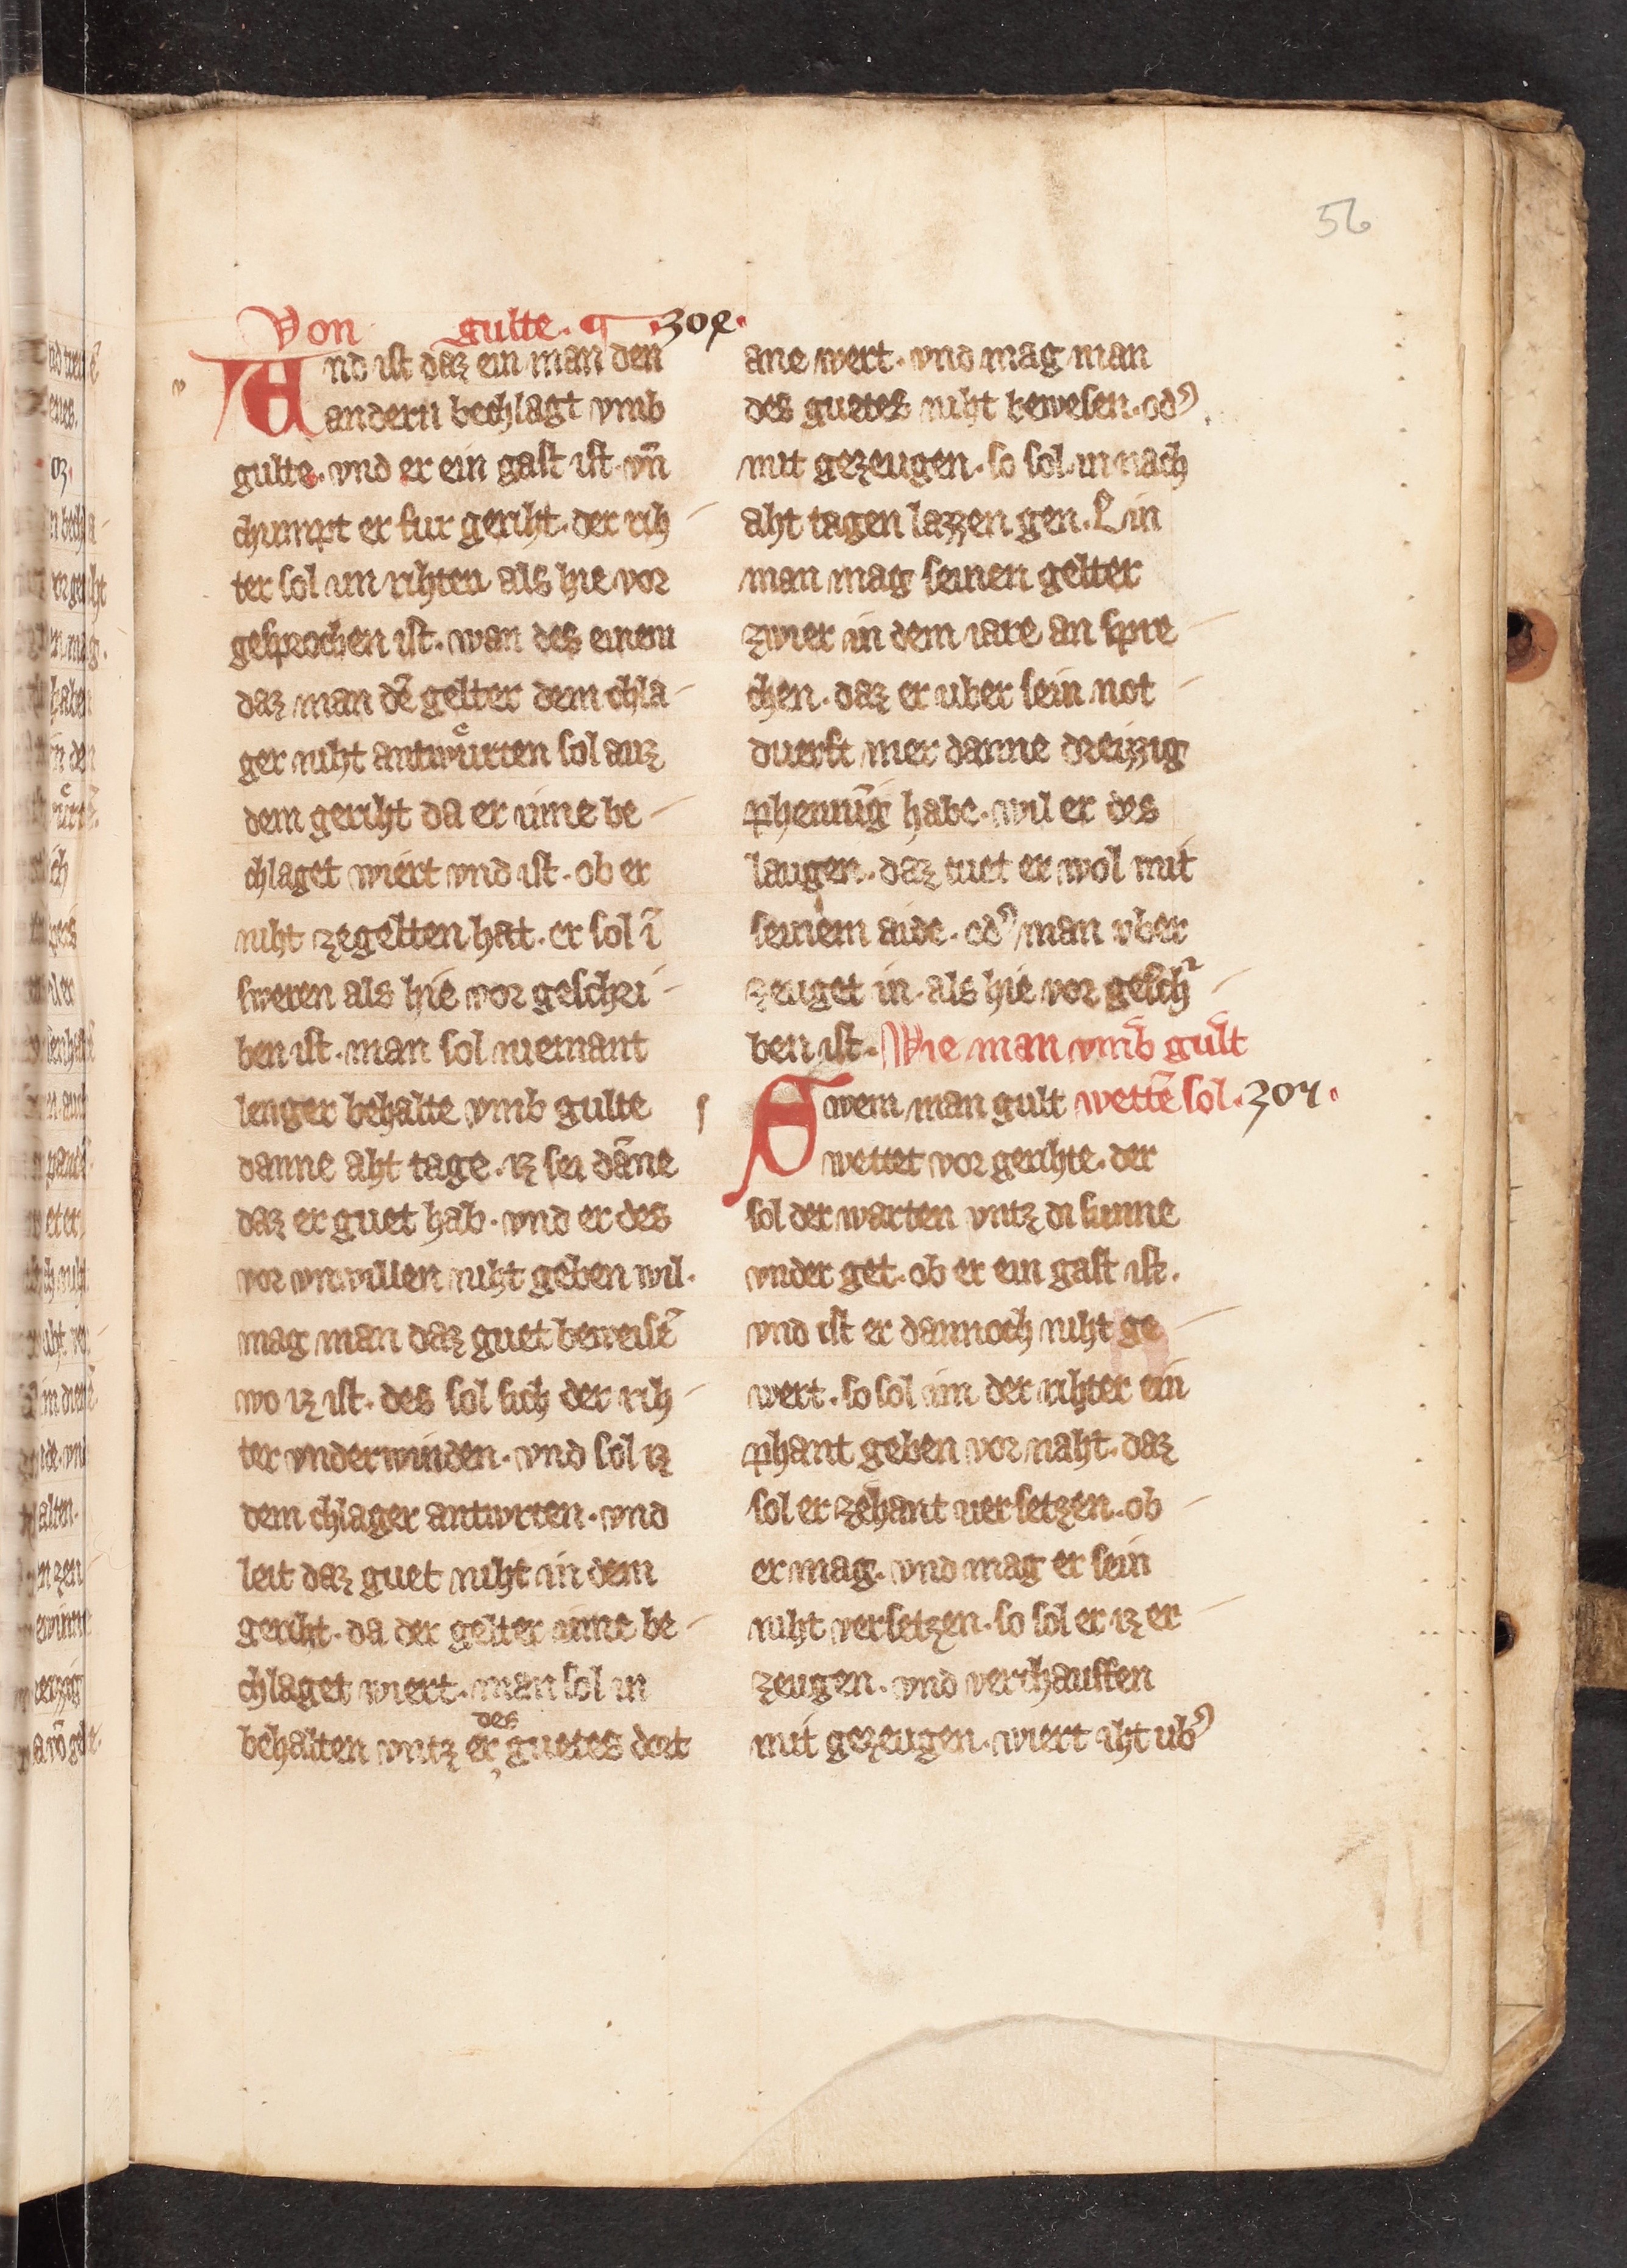 56
Von gulte. ¶ .304.
Und ist daz ein man den
andern bechlagt vmb
gulte. vnd er ein gast ist. vn̄
chumpt er fur geriht. der rih
ter sol im rihten als hie vor
gesprochen ist. wan des einem
daz man dē gelter dem chla
ger niht antwuͤrten sol auz
dem geriht da er inne be
chlaget wiert vnd ist. ob er
niht ze gelten hat. er sol ī
sweren als hie vor geschri
ben ist. man sol niemant
lenger behalte vmb gulte
danne aht tage. iz sei dāne
daz er guet hab. vnd er des
vor vnwillen niht geben wil.
mag man daz guet beweisē
wo iz ist. des sol sich der rih
ter vnderwinden. vnd sol iz
dem chlager antwrten. vnd
leit daz guet niht in dem
geriht. da der gelter inne be
chlaget wiert. man sol in
behalten vntz er des guetes dort
ane wert. vnd mag man
des guetes niht bewesen. od᾽
mit gezeugen. so sol in nach
aht tagen lazzen gen. Ein
man mag seinen gelter
zwier in dem iare an spre
chen. daz er uber sein not
duerft mer danne dreizzig
phennīg habe. wil er des
laugen. daz tuet er wol mit
seinem aide. od᾽ man vber
zeuget in. als hie vor gesch
ben ist. Wie man vmb gult
Swem man gult wettē sol .304.
wettet vor gerihte. der
sol der warten vntz di sunne
vnder get. ob er ein gast ist.
vnd ist er dannoch niht ge
wert. so sol im der rihter ein
phant geben vor naht. daz
sol er zehant versetzen. ob
er mag. vnd mag er sein
niht versetzen. so sol er iz er
zeugen. vnd verchauffen
mit gezeugen. wiert iht ub᾽